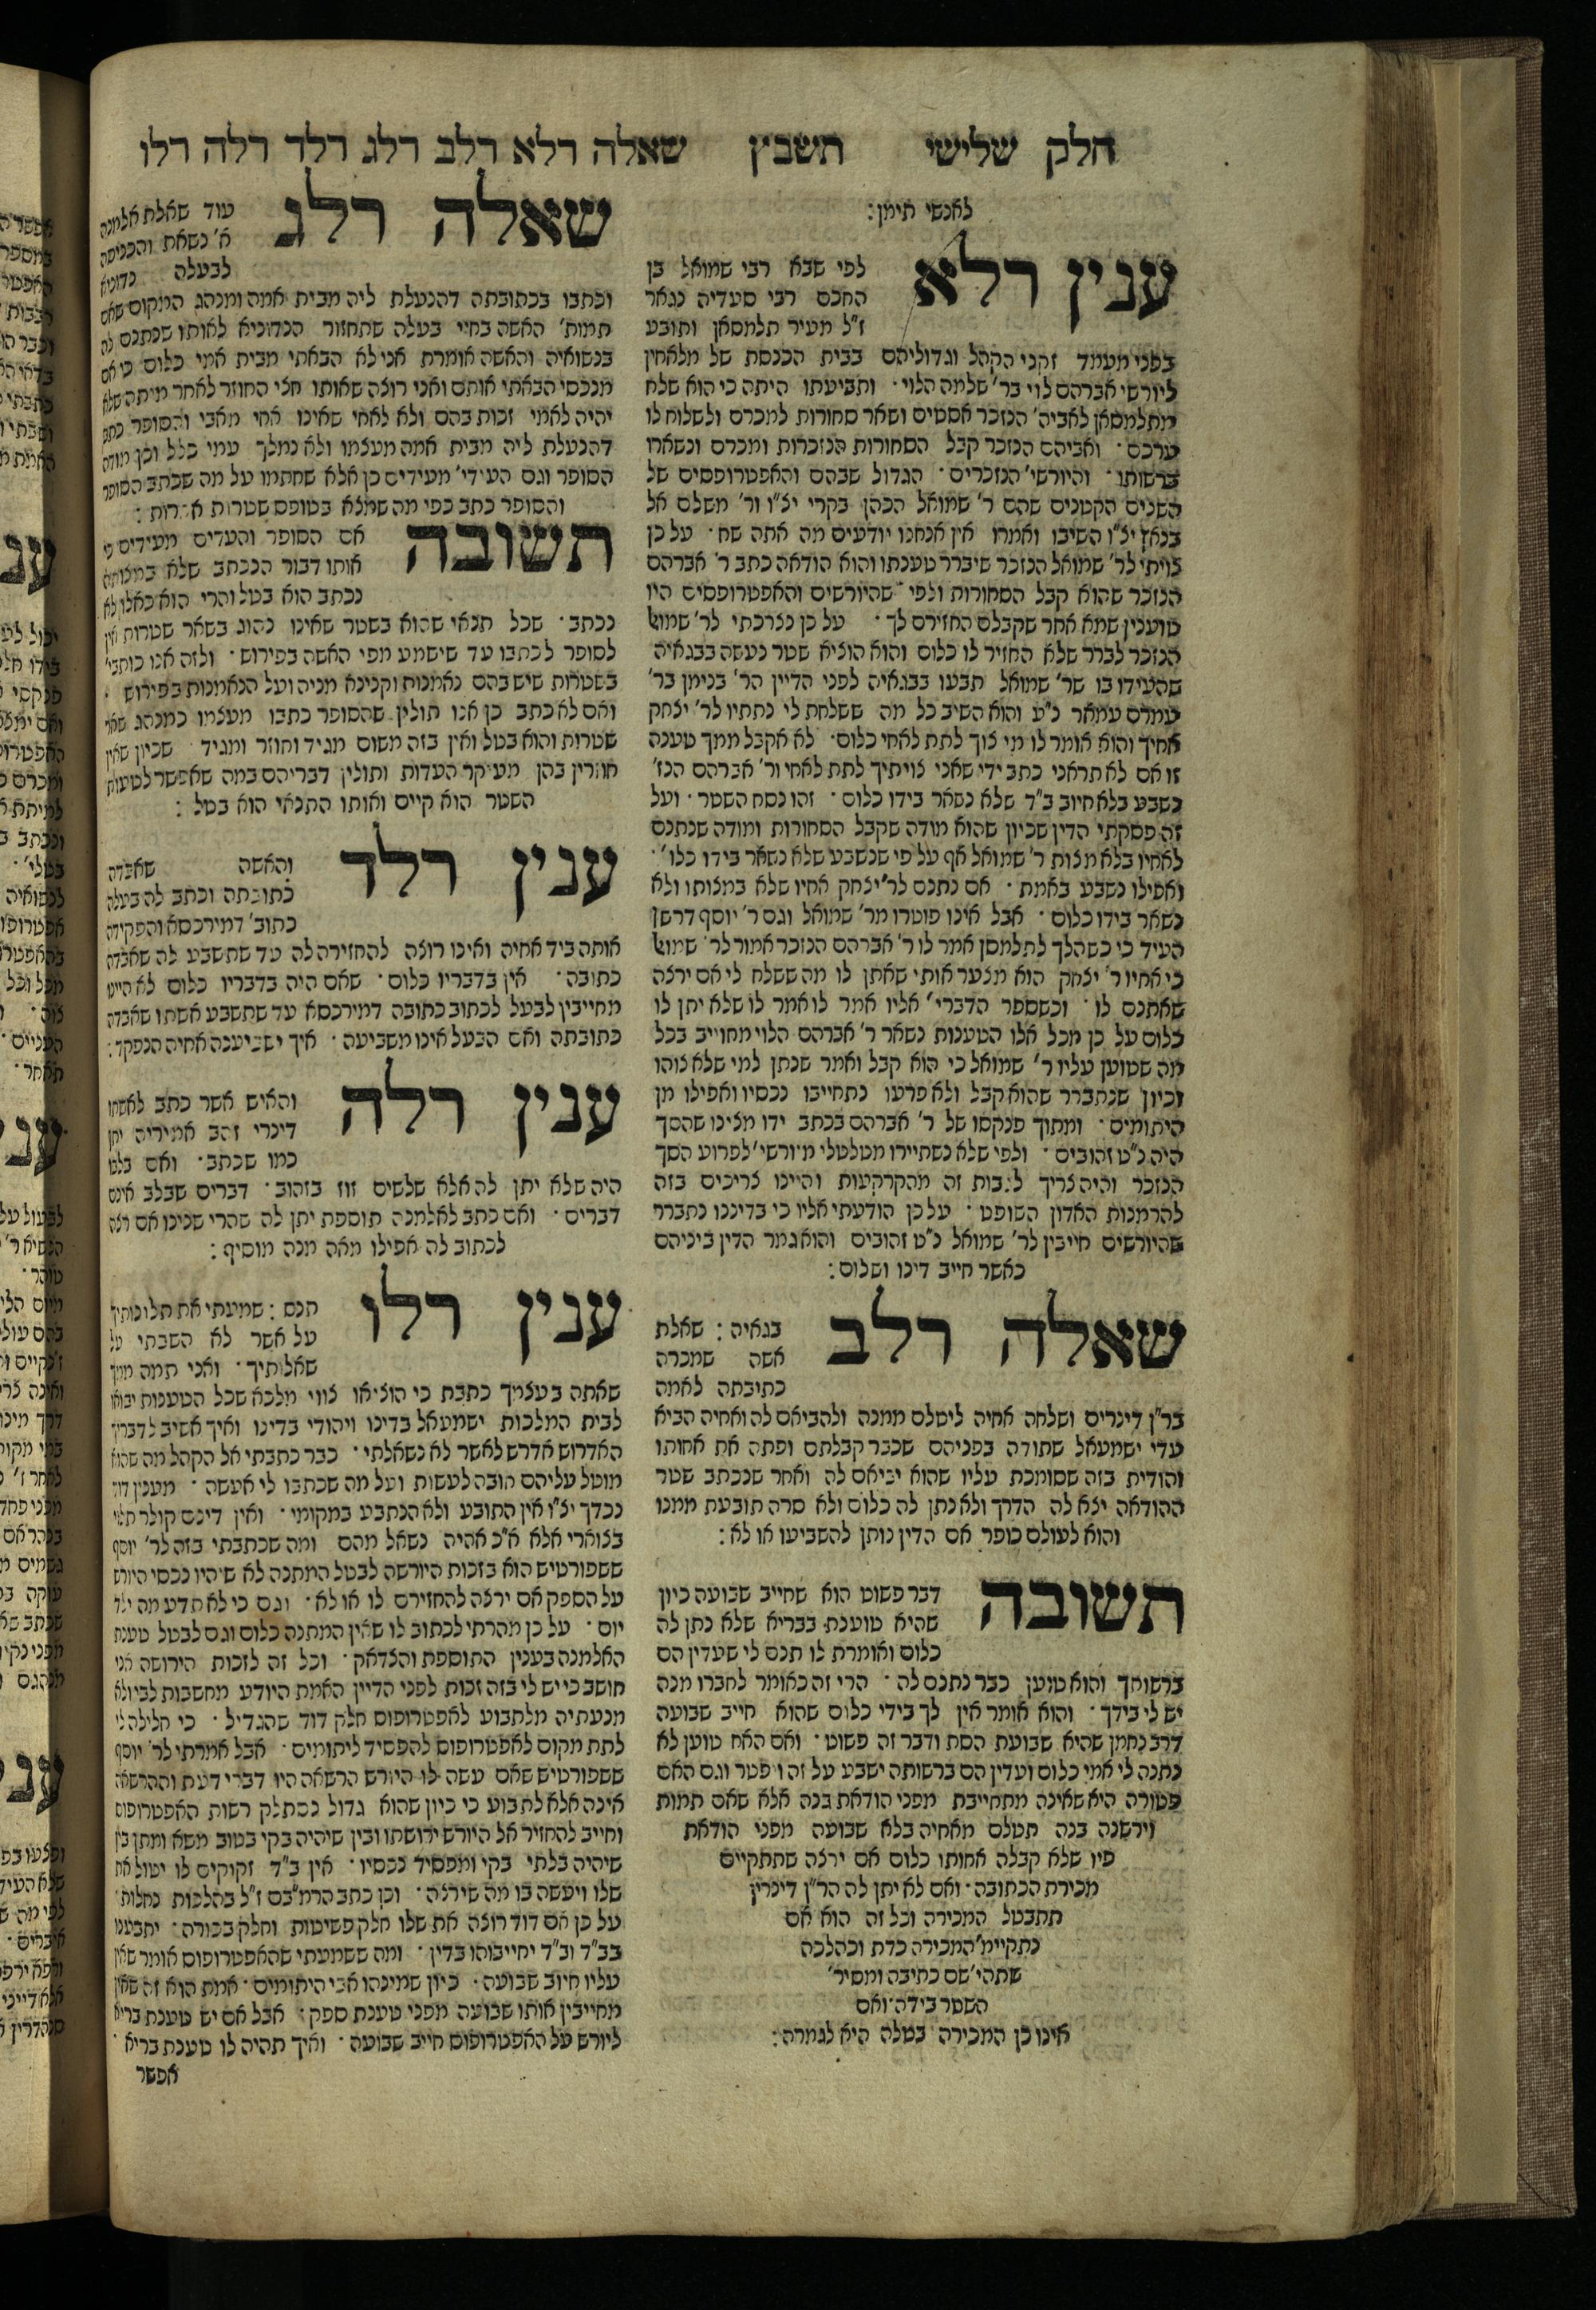 חלק שלישי תשבץ שאלה רלא רלב רלג רלד רלה רלו
לאנשי תימן:
ענין רלא
לפי שבא רבי שמואל בן
החכם רבי סעדיה נגאר
ז"ל מעיר תלמסאן ותובע
בפני מעמד זקני הקהל וגדוליהם בבית הכנסת של מלאחין
ליורשי אברהם לוי בר' שלמה הלוי· ותביעתו היתה כי הוא שלח
מתלמסאן לאביה' הנזכר אסטיס ושאר סחורות למכרם ולשלוח לו
ערכם· ואביהם הנזכר קבל הסחורות הנזכרות ומכרם ונשארו
ברשותו· והיורשי' הנזכרים· הגדול שבהם והאפטרופסים של
השנים הקטנים שהם ר' שמואל הכהן בקרי יצ"ו ור' משלם אל
בנאזן יצ"ו השיבו ואמרו אין אנחנו יודעים מה אתה שח· על כן
צויתי לר' שמואל הנזכר שיברר טענתו והוא הודאה כתב ר' אברהם
הנזכר שהוא קבל הסחורות ולפי שהיורשים והאפטרופסים היו
טוענין שמא אחר שקבלם החזירם לך· על כן נצרכתי לר' שמואל
הנזכר לברר שלא החזיר לו כלום והוא הוציא שטר נעשה בבגאיה
שהעידו בו שר' שמואל תבעו בבגאיה לפני הדיין הר' בנימן בר'
עמרם עמאר נ"ע והוא השיב כל מה ששלחת לי נתתיו לר' יצחק
אחיך והוא אומר לו מי צוך לתת לאחי כלום· לא אקבל ממך טענה
זו אם לא תראני כתב ידי שאני צויתיך לתת לאחי ור' אברהם הנז'
נשבע בלא חיוב ב"ד שלא נשאר בידו כלום· זהו נסח השטר· ועל
זה פסקתי הדין שכיון שהוא מודה שקבל הסחורות ומודה שנתנם
לאחיו בלא מצות ר' שמואל אף על פי שנשבע שלא נשאר בידו כלו'·
ואפילו נשבע באמת· אם נתנם לר' יצחק אחיו שלא במצותו ולא
נשאר בידו כלום· אבל אינו פוטרו מר' שמואל וגם ר' יוסף דרשן
העיד כי כשהלך לתלמסן אמר לו ר' אברהם הנזכר אמור לר' שמואל
כי אחיו ר' יצחק הוא מצער אותי שאתן לו מה ששלח לי אם ירצה
שאתנם לו· וכשספר הדברי' אליו אמר לו אמר לו שלא יתן לו
כלום על כן מכל אלו הטענות נשאר ר' אברהם הלוי מחוייב בכל
מה שטוען עליו ר' שמואל כי הוא קבל ואמר שנתן למי שלא צוהו
וכיון שנתברר שהוא קבל ולא פרעו נתחייבו נכסיו ואפילו מן
היתומים· ומתוך פנקסו של ר' אברהם בכתב ידו מצינו שהסך
היה נ"ט זהובים· ולפי שלא נשתיירו מטלטלי מיורשי' לפרוע הסך
הנזכר והיה צריך לגבות זה מהקרקעות והיינו צריכים בזה
להרמנות האדון השופט· על כן הודעתי אליו כי בדיננו נתברר
שהיורשים חייבין לר' שמואל נ"ט זהובים והוא גמר הדין ביניהם
כאשר חייב דינו ושלום:
שאלה רלב
בגאיה: שאלת
אשה שמכרה
כתיבתה לאמה
בר"ן דינרים ושלחה אחיה ליטלם ממנה ולהביאם לה ואחיה הביא
עדי ישמעאל שתודה בפניהם שכבר קבלתם ופתה את אחותו
והודית בזה שסומכת עליו שהוא יביאם לה ואחר שנכתב שטר
ההודאה יצא לה הדרך ולא נתן לה כלום ולא סרה תובעת ממנו
והוא לעולם כופר אם הדין נותן להשביעו או לא:
תשובה
דבר פשוט הוא שחייב שבועה כיון
שהיא טוענת בבריא שלא נתן לה
כלום ואומרת לו תנם לי שעדין הם
ברשותך והוא טוען כבר נתנם לה· הרי זה כאומר לחברו מנה
יש לי בידך· והוא אומר אין לך בידי כלום שהוא חייב שבועה
דרב נחמן שהיא שבועת הסת ודבר זה פשוט· ואם האח טוען לא
נתנה לי אמי כלום ועדין הם ברשותה ישבע על זה ופטר וגם האם
פטורה היא שאינה מתחייבת מפני הודאת בנה אלא שאם תמות
וירשנה בנה תטלם מאחיה בלא שבועה מפני הודאת
פיו שלא קבלה אחותו כלום אם ירצה שתתקיים
מכירת הכתובה· ואם לא יתן לה הר"ן דינרין
תתבטל המכירה וכל זה הוא אם
נתקיימ' המכירה כדת וכהלכה
שתהי' שם כתיבה ומסיר'
השטר בידה· ואם
אינו כן המכירה בטלה היא לגמרה:
שאלה רלג
עוד שאלת אלמנה
א' נשאת והכניסה
לבעלה נדוניא
וכתבו בכתובתה דהנעלת ליה מבית אמה ומנהג המקום שאם
תמות' האשה בחיי בעלה שתחזור הנדוניא לאותו שנתנם לה
בנשואיה והאשה אומרת אני לא הבאתי מבית אמי כלום כי אם
מנכסי הבאתי אותם ואני רוצה שאותו חצי החוזר לאחר מיתה שלא
יהיה לאמי זכות בהם ולא לאחי שאינו אחי מאבי והסופר כתב
דהנעלת ליה מבית אמה מעצמו ולא נמלך עמי כלל וכן מודה
הסופר וגם העידי' מעידים כן אלא שחתמו על מה שכתב הסופר
והסופר כתב כפי מה שמלא בטופס שטרות אחרות:
תשובה
אם הסופר והעדים מעידים כי
אותו דבור הנכתב שלא במצותה
נכתב הוא בטל והרי הוא כאלו לא
נכתב· שכל תנאי שהוא בשטר שאינו נהוג בשאר שטרות אין
לסופר לכתבו עד שישמע מפי האשה בפירוש· ולזה אנו כותבי'
בשטרות שיש בהם נאמנות וקנינא מניה ועל הנאמנות בפירוש·
ואם לא כתב כן אנו תולין שהסופר כתבו מעצמו כמנהג שאר
שטרות והוא בטל ואין בזה משום מגיד וחוזר ומגיד שכיון שאין
חוזרין בהן מעיקר העדות ותולין דבריהם במה שאפשר לטעות
השטר הוא קיים ואותו התנאי הוא בטל:
ענין רלד
והאשה שאבדה
כתובתה וכתב לה בעלה
כתוב' דמירכסא והפקידה
אותה ביד אחיה ואינו רוצה להחזירה לה עד שתשבע לה שאבדה
כתובה· אין בדבריו כלום· שאם היה בדבריו כלום לא היינו
מחייבין לבעל לכתוב כתובה דמירכסא עד שתשבע אשתו שאבדה
כתובתה ואם הבעל אינו משביעה· איך ישביענה אחיה הנפקד:
ענין רלה
והאיש אשר כתב לאשתו
דינרי זהב אמיריה יתן
כמו שכתב· ואם בלבו
היה שלא יתן לה אלא שלשים זוז בזהוב· דברים שבלב אינם
דברים· ואם כתב לאלמנה תוספת יתן לה שהרי שנינו אם רצה
לכתוב לה אפילו מאה מנה מוסיף:
ענין רלו
תנס: שמעתי את תלונותיך
על אשר לא השבתי על
שאלותיך· ואני תמה ממך
שאתה בעצמך כתבת כי הוציאו צווי מלכא שכל הטענות יבואו
לבית המלכות ישמעאל בדינו ויהודי בדינו ואיך אשיב לדבריך
האדרוש אדרש לאשר לא נשאלתי· כבר כתבתי אל הקהל מה שהוא
מוטל עליהם חובה לעשות ועל מה שכתבו לי אעשה· מענין דוד
נכדך יצ"ו אין התובע ולא הנתבע במקומי· ואין דינם קולר תלוי
בצוארי אלא א"כ אהיה נשאל מהם ומה שכתבתי בזה לר' יוסף
ששפורטיש הוא בזכות היורשה לבטל המתנה לא שיהיו נכסי היורש
על הספק אם ירצה להחזירם לו או לא· וגם כי לא תדע מה ילד
יום· על כן מהרתי לכתוב לו שאין המתנה כלום וגם לבטל טענת
האלמנה בענין התוספת והצדאק· וכל זה לזכות הירושה אני
חושב כי יש לי בזה זכות לפני הדיין האמת היודע מחשבות לבי ולא
מנעתיה מלתבוע לאפטרופוס חלק דוד שהגדיל· כי חלילה לי
לתת מקום לאפטרופוס להפסיד ליתומים· אבל אמרתי לר' יוסף
ששפורטיש שאם עשה לו היורש הרשאה היו דברי דעת וההרשאה
אינה אלא לתבוע כי כיון שהוא גדול נסתלק רשות האפטרופוס
וחייב להחזיר אל היורש ירושתו ובין שיהיה בקי בטוב משא ומתן בין
שיהיה בלתי בקי ומפסיד נכסיו· אין ב"ד זקוקים לו יטול את
שלו ויעשה בו מה שירצה· וכן כתב הרמ"בם ז"ל בהלכות נחלות·
על כן אם דוד רוצה את שלו חלק פשיטות וחלק בכורה· יתבענו
בב"ד וב"ד יחייבוהו בדין· ומה ששמעתי שהאפטרופוס אומר שאין
עליו חיוב שבועה· כיון שמינהו אבי היתומים· אמת הוא זה שאין
מחייבין אותו שבועה מפני טענת ספק· אבל אם יש טענת בריא
ליורש על האפטרופוס חייב שבועה· ואיך תהיה לו טענת בריא·
אפשר